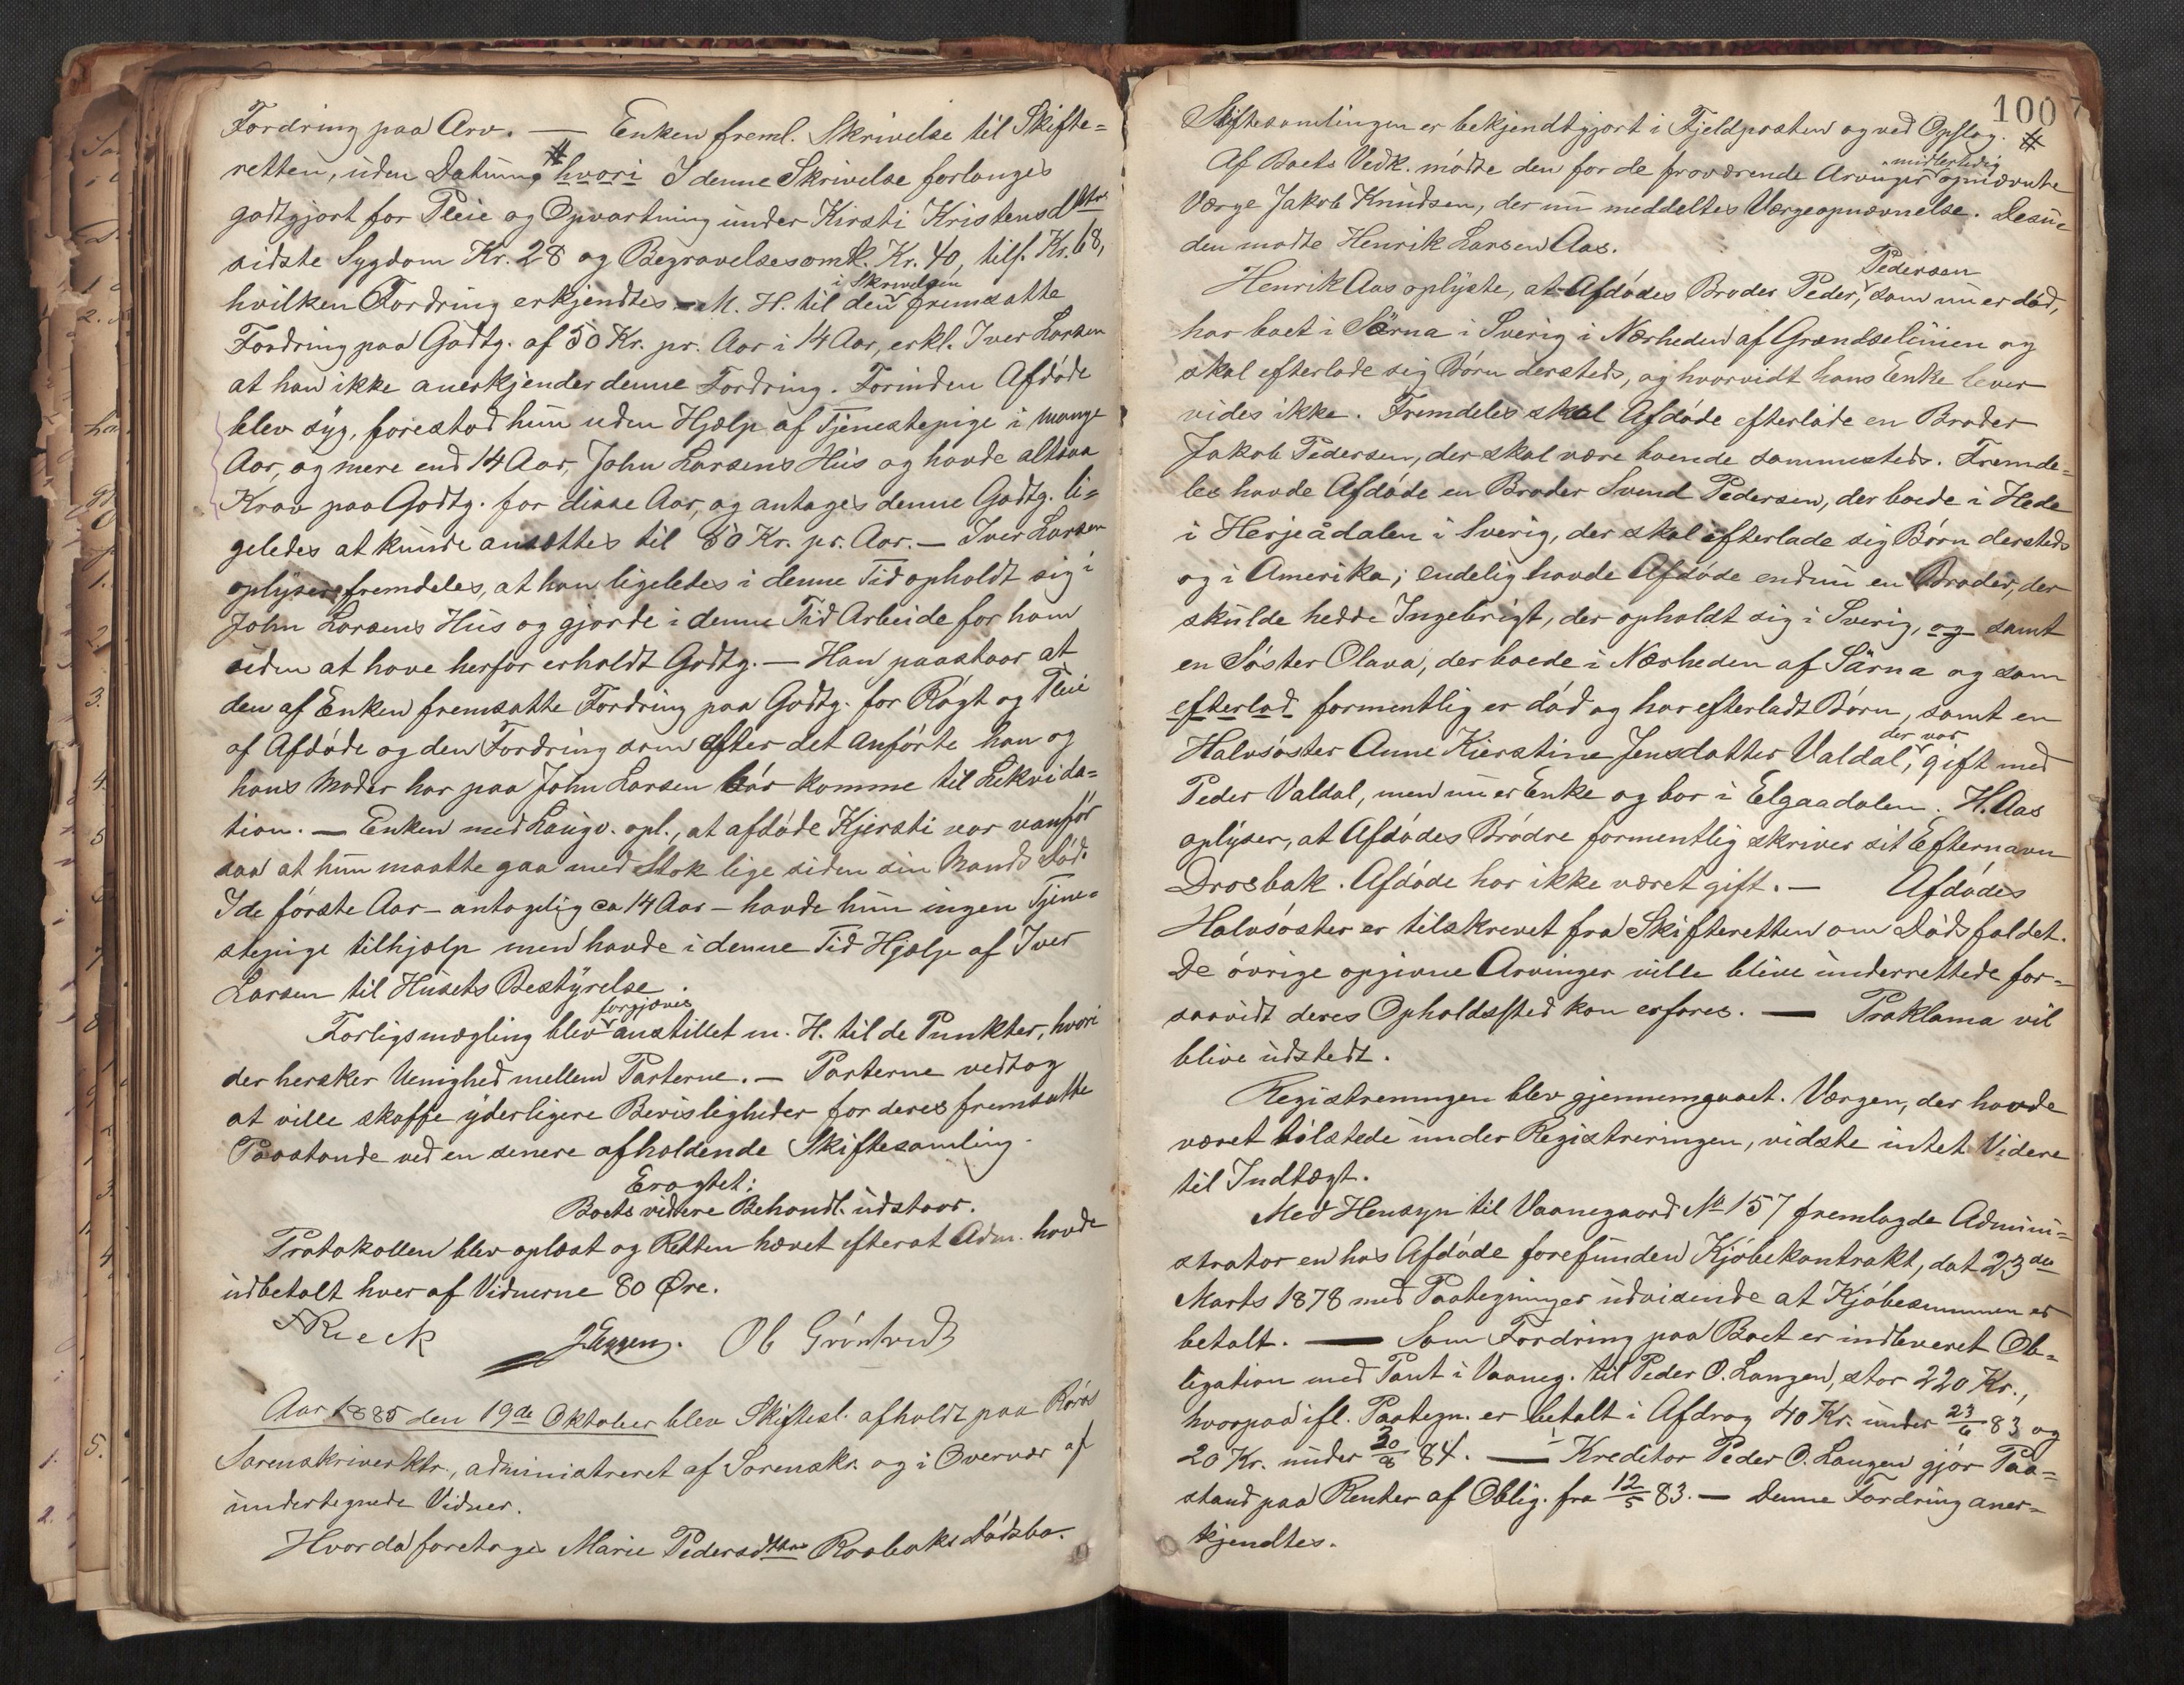 Fordring paa Arv. — Enken freml. Skrivelse til Skifte=
retten, uden Datum, # hvori I denne Skrivelse forlanges
godtgjort for Pleie og Opvartning under Kirsti Kristensdttrs
sidste Sygdom Kr. 28 og Begravelsesomk. Kr. 40, tils. Kr. 68,
hvilken Fordring erkjendtes. — M. H. til den i Skrivelsen fremsatte
Fordring paa Godtg. af 50 Kr. pr. Aar i 14 Aar, erkl. Iver Larsen
at han ikke anerkjender denne Fordring. Forinden Afdøde
blev syg, forestod hun uden Hjælp af Tjenestepige i mange
Aar, og mere end 14 Aar, John Larsens Hus og havde altsaa
Krav paa Godtg. for disse Aar, og antages denne Godtg. li=
geledes at kunde ansættes til 50 Kr. pr. Aar. — Iver Larsen
oplyser fremdeles, at han ligeledes i denne Tid opholdt sig i
John Larsens Hus og gjorde i denne Tid Arbeide for ham
uden at have herfor erholdt Godtg. — Han paastaar at
den af Enken fremsatte Fordring paa Godtg. for Røgt og Pleie
af Afdøde og den Fordring som efter det anførte han og
hans Moder har paa John Larsen bør komme til Likvida=
tion. — Enken med Laugv. opl., at afdøde Kjersti var vanfør
saa at hun maatte gaa med Stok lige siden sin Mands Død.
I de første Aar – antagelig ca 14 Aar – havde hun ingen Tjene=
stepige tilhjælp men havde i denne Tid Hjælp af Iver
Larsen til Husets Bestyrelse.
Forligsmægling blev forgjæves anstillet m. H. til de Punkter, hvori
der hersker Uenighed mellem Parterne. — Parterne vedtog
at ville skaffe yderligere Bevisligheder for deres fremsatte
Paastande ved en senere afholdende Skiftesamling.
Eragtet:
Boets videre Behandl. udstaar.
Protokollen blev oplæst og Retten hævet efterat Adm. havde
udbetalt hver af Vidnerne 80 Øre.
Rieck JEggen. Ob Gröntvedt
Aar 1885 den 19de Oktober blev Skiftesl. afholdt paa Røros
Sorenskriverktr., administreret af Sorenskr. og i Overvær af
undertegnede Vidner.
Hvorda foretoges Marie Pedersdtters Raabaks Dødsbo.
100
Skiftesamlingen er bekjendtgjort i Fjeldposten og ved Opslag. #
Af Boets Vedk. mødte den for de fraværende Arvinger midlertidig opnævnte
Værge Jakob Knudsen, der nu meddeltes Værgeopnævnelse. Desu=
den mødte Henrik Larsen Aas.
Henrik Aas oplyste, at Afdødes Broder Peder Pedersen, som nu er død,
har boet i Särna i Sverig i Nærheden af Grændselinien og
skal efterlade sig Børn dersteds, og hvorvidt hans Enke lever
vides ikke. Fremdeles skal Afdøde efterlade en Broder
Jakob Pedersen, der skal være boende sammesteds. Fremde=
les havde Afdøde en Broder Svend Pedersen, der boede i Hede
i Herjeådalen i Sverig, der skal efterlade sig Børn dersteds
og i Amerika; endelig havde Afdøde endnu en Broder, der
skulde hedde Ingebrigt, der opholdt sig i Sverig, og samt
en Søster Olava, der boede i Nærheden af Särna og som
efterlod formentlig er død og har efterladt Børn, samt en
Halvsøster Anne Kierstine Jensdatter Valdal, der var gift med
Peder Valdal, men nu er Enke og bor i Elgaadalen. H. Aas
oplyser, at Afdødes Brødre formentlig skriver sit Efternavn
Drosbak. Afdøde har ikke været gift. — Afdødes
Halvsøster er tilskrevet fra Skifteretten om Dødsfaldet.
De øvrige opgivne Arvinger ville blive underrettede for=
saavidt deres Opholdssted kan erfares. — Proklama vil
blive udstedt.
Registreringen blev gjennemgaaet. Værgen, der havde
været tilstede under Registreringen, vidste intet Videre
til Indtægt.
Med Hensyn til Vaanegaard No 157 fremlagde Admini=
strator en hos Afdøde forefunden Kjøbekontrakt, dat 23de
Marts 1878 med Paategninger udvisende at Kjøbesummen er
betalt. — Som Fordring paa Boet er indleveret Ob=
ligation med Pant i Vaaneg. til Peder O. Langen, stor 220 Kr.,
hvorpaa ifl. Paategn. er betalt i Afdrag 40 Kr. under 23/6 83 og
20 Kr. under 20/8 84. — Kreditor Peder O. Langen gjør Paa=
stand paa Renter af Oblig. fra 12/5 83. — Denne Fordring aner=
kjendtes.